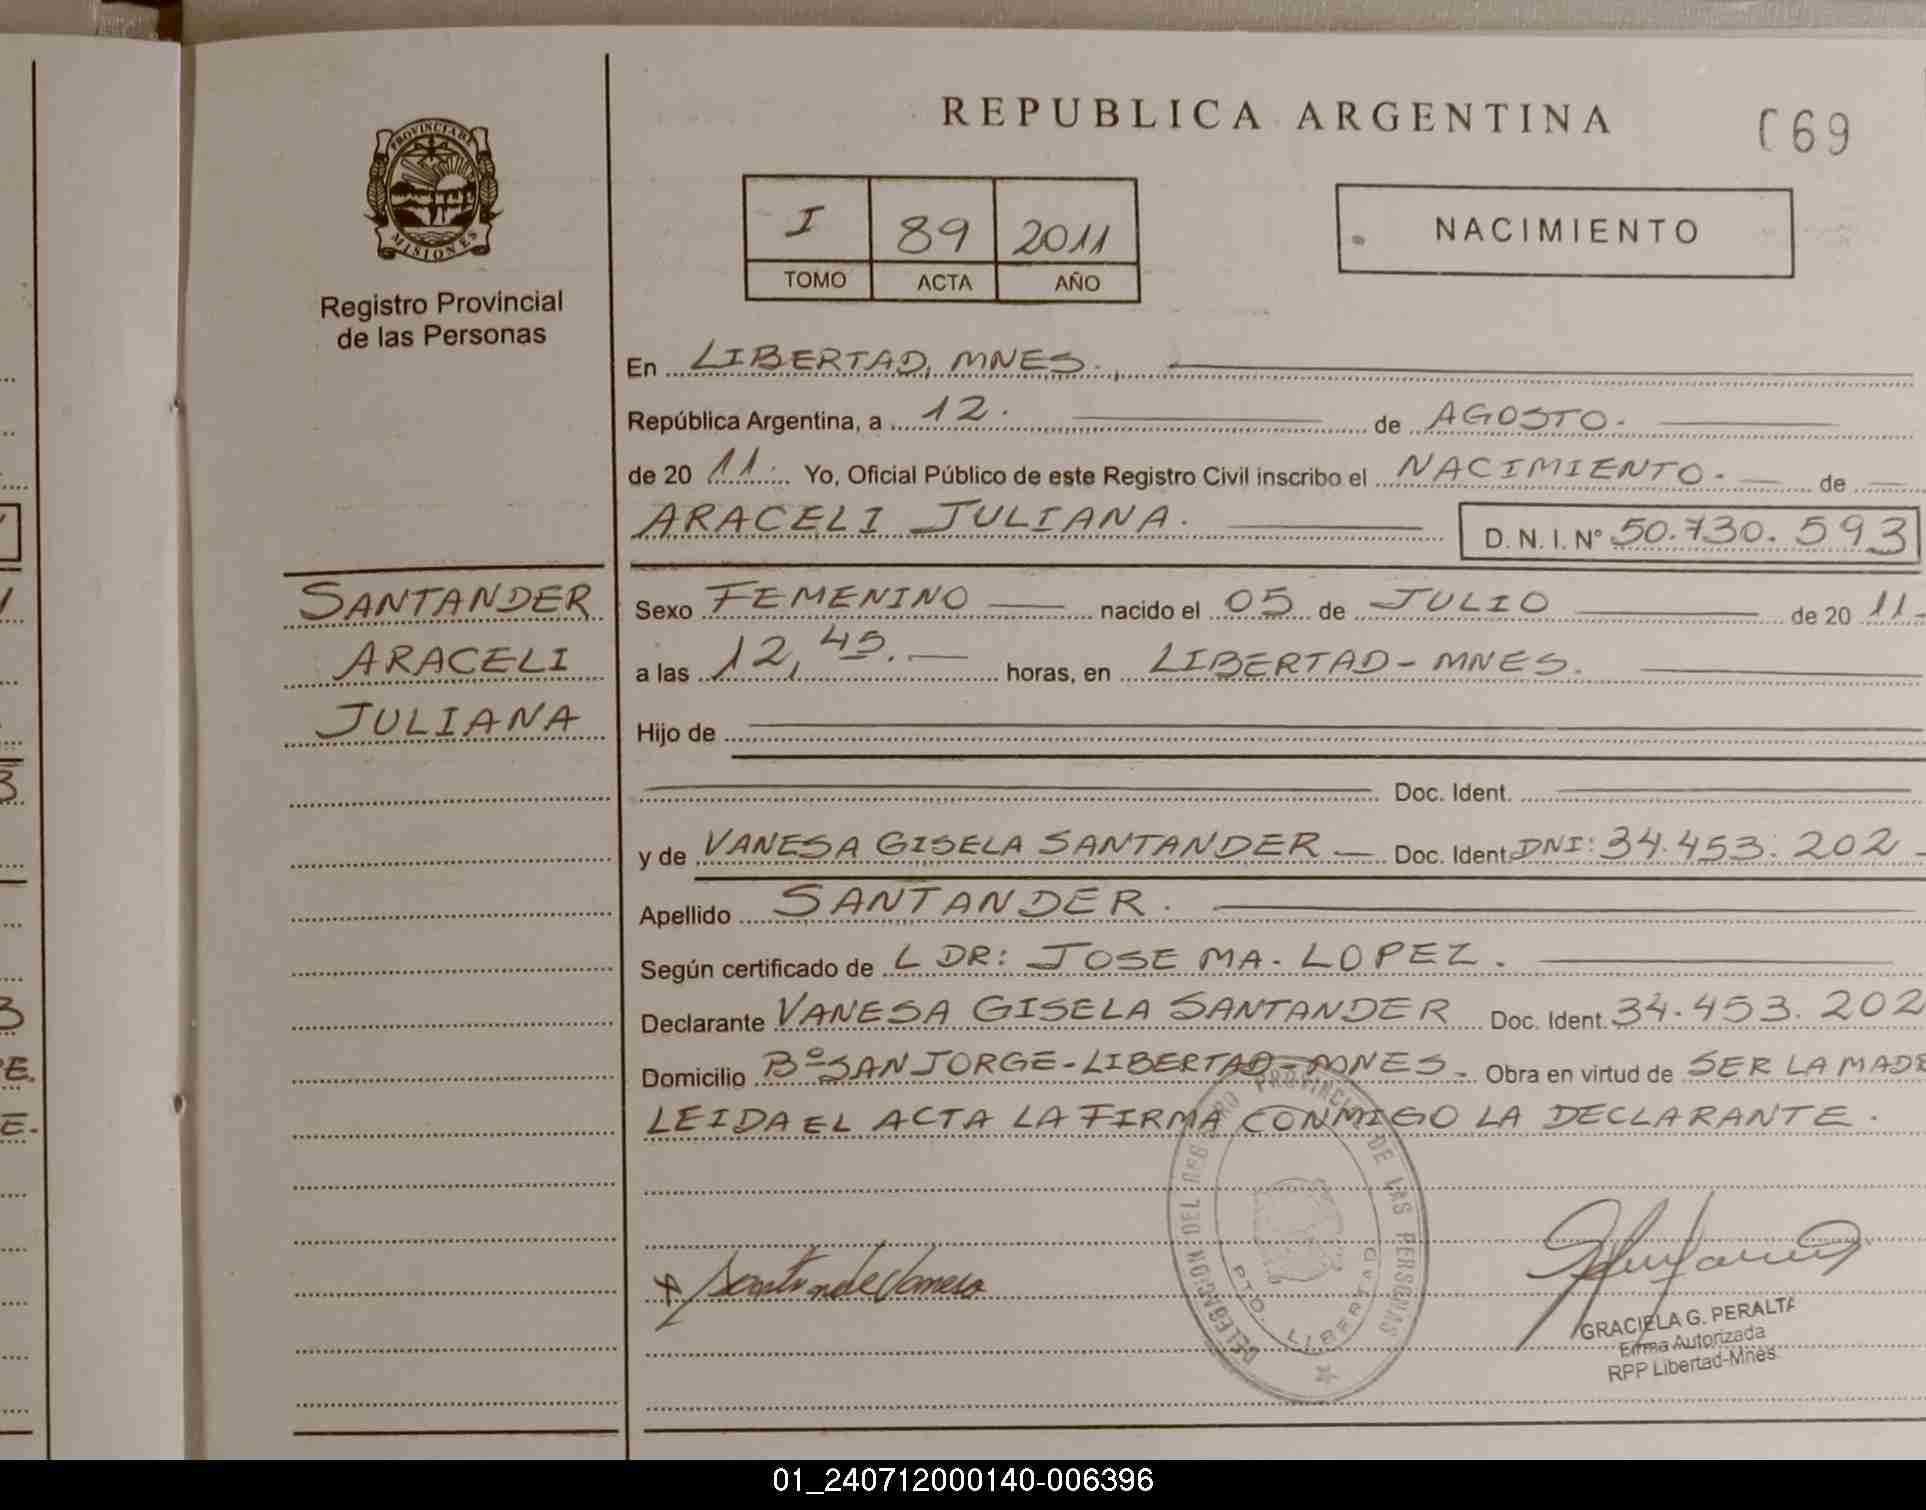 REPUBLICA ARGENTINA
C69
PROVINCIA DE
MISIONES
Registro Provincial
de las Personas
I 89 2011
TOMO ACTA AÑO
NACIMIENTO
En LIBERTAD, MNES.
República Argentina, a 12. de AGOSTO.
de 20 11. Yo, Oficial Público de este Registro Civil inscribo el NACIMIENTO. de
ARACELI JULIANA. D. N. I. N° 50.730.593
SANTANDER
ARACELI
JULIANA
Sexo FEMENINO nacido el 05 de JULIO de 20 11-
a las 12,45. horas, en LIBERTAD-MNES.
Hijo de
Doc. Ident.
y de VANESA GISELA SANTANDER Doc. Ident DNI: 34.453.202
Apellido SANTANDER.
Según certificado de L DR: JOSE MA. LOPEZ.
Declarante VANESA GISELA SANTANDER Doc. Ident. 34.453.202
Domicilio Bº SAN JORGE-LIBERTAD-MNES. Obra en virtud de SER LA MADE
LEIDA EL ACTA LA FIRMA CONMIGO LA DECLARANTE.
DELEGACION DEL REGISTRO PROVINCIAL DE LAS PERSONAS
PTO. LIBERTAD
Santander Vanesa
GRACIELA G. PERALTA
Firma Autorizada
RPP Libertad-Mnes.
01_240712000140-006396